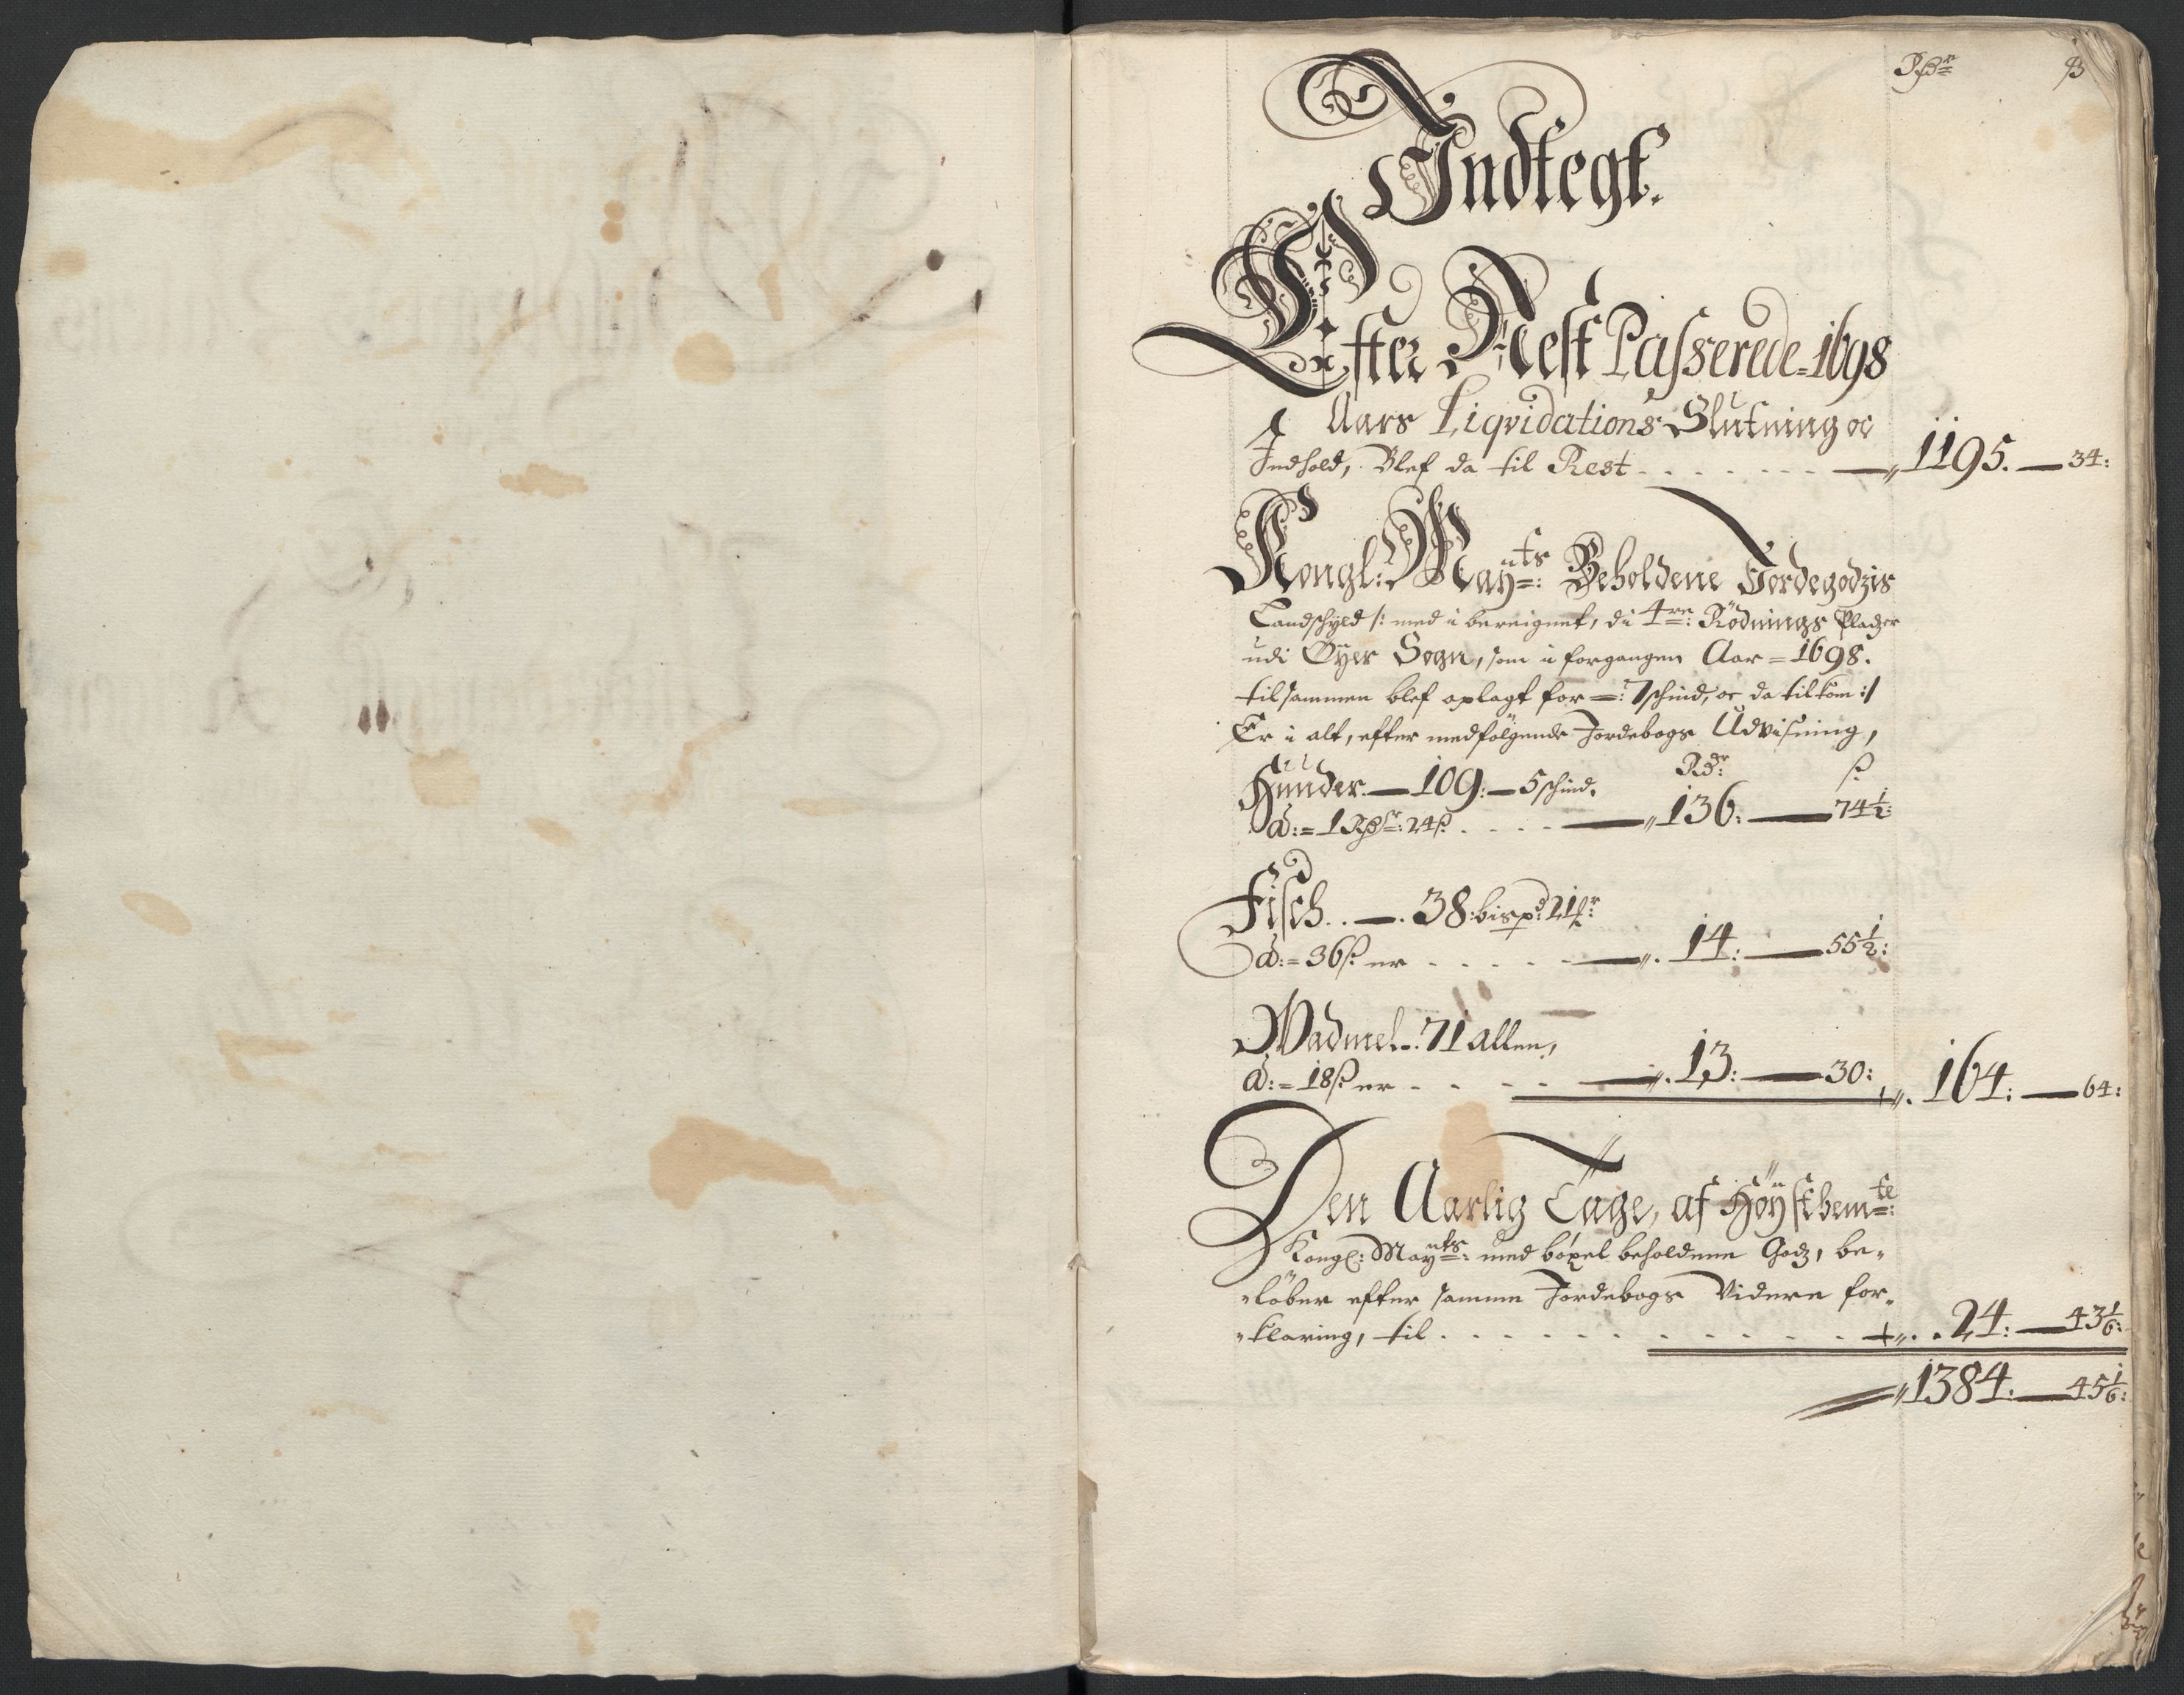 Rdr ß
Indtegt.
Efter Nest Passerede 1698
Aars Liqvidations Slutning oc
Indhold, Blef da til Rest - - - - - - - 1195. — 34:
Kongl: Mayts: Beholdene Jordegodzis
Landschyld /: med i bereignet, di 4re: Rödnings Pladzer
udi Öyer Sogn, som i forgangen Aar = 1698.
tilsammen blef oplagt for =: 7 schind, oc da tilkom :/
Er i alt, efter medfölgende Jordebogs Udvisning,
Rdr: ß
Hunder. — 109: — 5 schind.
à: = 1 Rdr: 24 ß. - - - - 136: — 74 1/2:
Fisch. . — . 38: bispd: 21 r:
à: = 36 ß: er - - - - - 14: — 55 1/2:
Wadmel. - . 71 allen,
à: = 18 ß er - - - - 13: — 30: 164: — 64:
Den Aarlig Tage, af Höystbemte:
Kongl: Mayts: med böxel beholdene Godz, be-
löber efter samme Jordebogs Videre for-
klaring, til . - - - - - - - - - - - 24: — 43 1/6:
1384: — 45 1/6: